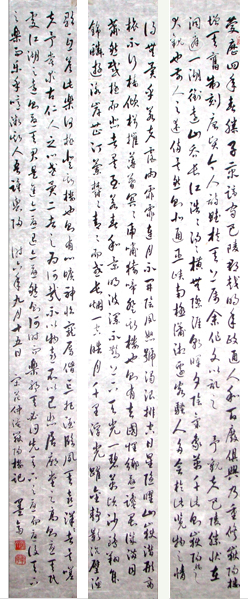 慶曆四年春滕子京謫守巴陵郡越明年政通人和百廢俱興乃重修岳陽樓
增其舊制刻唐賢今人詩賦於其上屬余作文以記之予觀夫巴陵勝狀在
洞庭一湖銜遠山吞長江浩浩湯湯橫無際涯朝暉夕陰氣象萬千此則岳陽樓之
大觀也前人之述備矣然則北通巫峽南極瀟湘遷客騷人多會於此覽物之情
得無異乎若夫霪雨霏霏連月不開陰風怒號濁浪排空日星隱曜山岳潛形商
旅不行檣傾楫摧薄暮冥冥虎嘯猿啼登斯樓也則有去國懷鄉憂讒畏譏滿目
蕭然感極而悲者矣至若春和景明波瀾不驚上下天光一碧萬頃沙鷗翔集
錦鱗游泳岸芷汀蘭郁郁青青而或長煙一空皓月千里浮光躍金靜影沉璧漁
歌互答此樂何極登斯樓也則有心曠神怡寵辱偕忘把酒臨風其喜洋洋者矣嗟
夫予嘗求古仁人之心或異二者之為何哉不以物喜不以己悲居廟堂之高則憂其民
處江湖之遠則憂其君是進亦憂退亦憂然則何時而樂耶其必曰先天下之憂而憂後天下
之樂而樂乎噫微斯人吾誰與歸時六年九月十五日范仲淹岳陽樓記